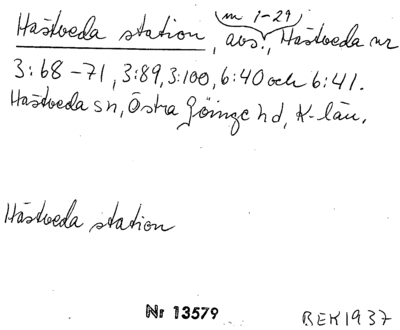 m 1-29
Hästveda station, avs., Hästveda nr
3:68-71, 3:89, 3:100, 6:40 och 6:41.
Hästveda sn, Östra Göinge hd, K-län.
Hästveda station
Nr 13579
BEK 1937